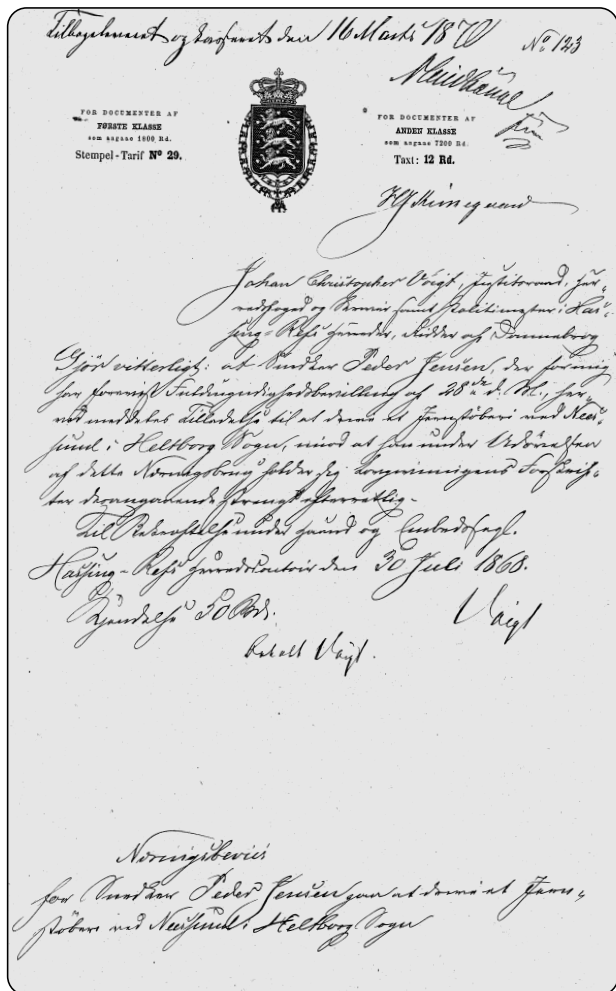 Tilbageleveret og casseret den 16 Marts 1870
No 123
FOR DOCUMENTER AF
FØRSTE KLASSE
som angaae 1800 Rd.
Stempel-Tarif No 29.
FOR DOCUMENTER AF
ANDEN KLASSE
som angaae 7200 Rd.
Taxt: 12 Rd.
Johan Christopher Voigt, Justitsraad, Her-
redsfoged og Skriver samt Politimester i Has-
sing-Refs Herreder, Ridder af Dannebrog
Gjör vitterligt: at Snedker Peder Jensen, der for mig
har foreviist Fuldmyndighedsbevilling af 28de d. M., her-
ved meddeles Tilladelse til at drive et Jernstöberi ved Nees-
sund i Heltborg Sogn, imod at han under Udövelsen
af dette Næringsbrug holder sig Lovgivningens Forskrif-
ter desangaaende strengt efterrettelig.
Til Bekræftelse under Haand og Embedssegl.
Hassing-Refs Herredscontoir den 30 Juli 1868.
Voigt
Kjendelse 50 Rd.
Betalt Voigt.
Næringsbeviis
for Snedker Peder Jensen paa at drive et Jern-
stöberi ved Neessund i Heltborg Sogn